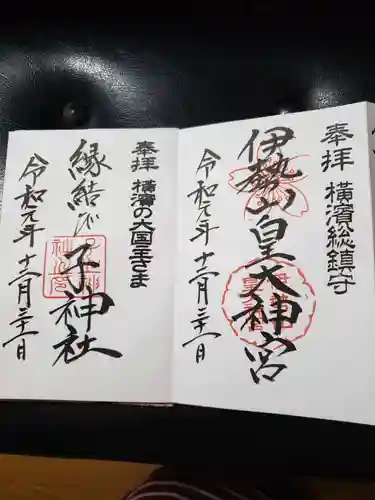 奉拝 横濱総鎮守
伊勢山皇大神宮
令和元年十二月三十一日
奉拝 横濱の大国主さま
縁結び
子神社
令和元年十二月三十一日